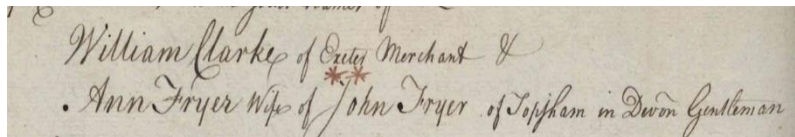 William Clarke of Exeter Merchant &
Ann Fryer Wife of John Fryer of Topsham in Devon Gentleman